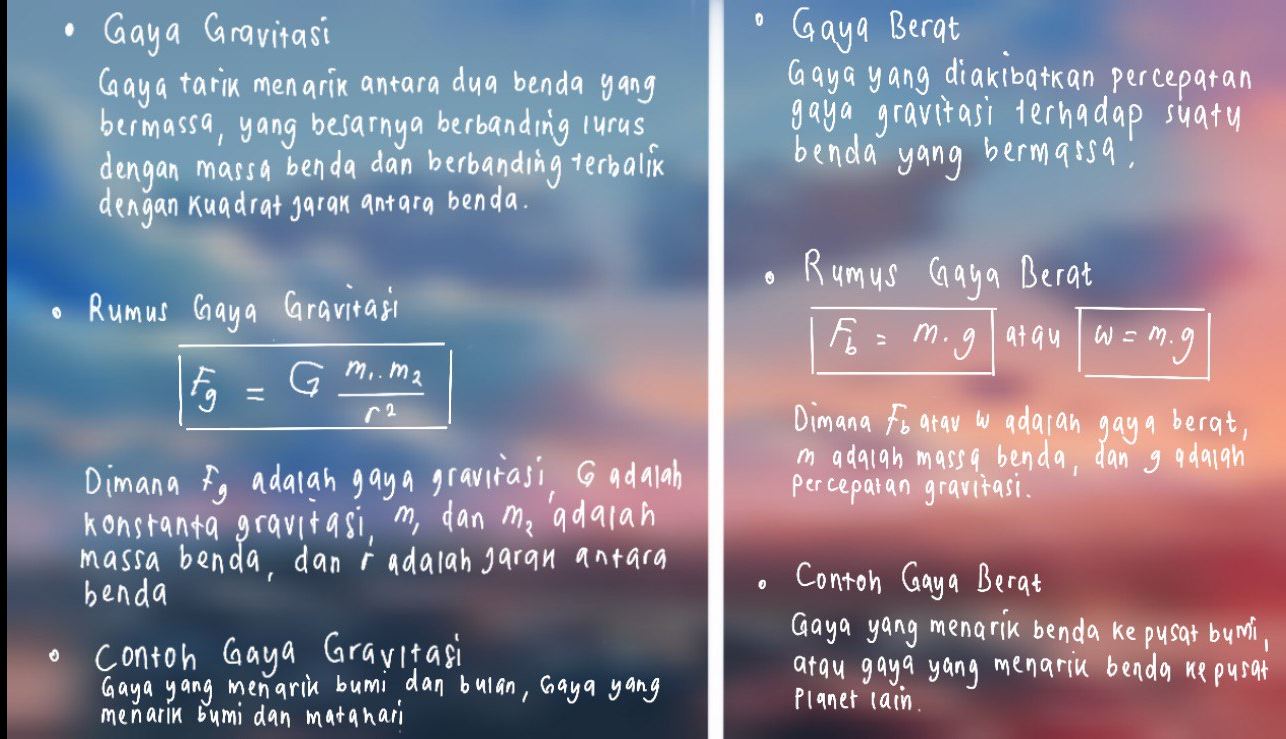 • Gaya Gravitasi
Gaya tarik menarik antara dua benda yang
bermassa, yang besarnya berbanding lurus
dengan massa benda dan berbanding terbalik
dengan kuadrat jarak antara benda.
• Rumus Gaya Gravitasi
Fg = G m₁.m₂ / r²
Dimana Fg adalah gaya gravitasi, G adalah
konstanta gravitasi, m₁ dan m₂ adalah
massa benda, dan r adalah jarak antara
benda
• Contoh Gaya Gravitasi
Gaya yang menarik bumi dan bulan, Gaya yang
menarik bumi dan matahari
• Gaya Berat
Gaya yang diakibatkan percepatan
gaya gravitasi terhadap suatu
benda yang bermassa.
• Rumus Gaya Berat
Fb = m.g atau w = m.g
Dimana Fb atau w adalah gaya berat,
m adalah massa benda, dan g adalah
percepatan gravitasi.
• Contoh Gaya Berat
Gaya yang menarik benda ke pusat bumi,
atau gaya yang menarik benda ke pusat
Planet lain.